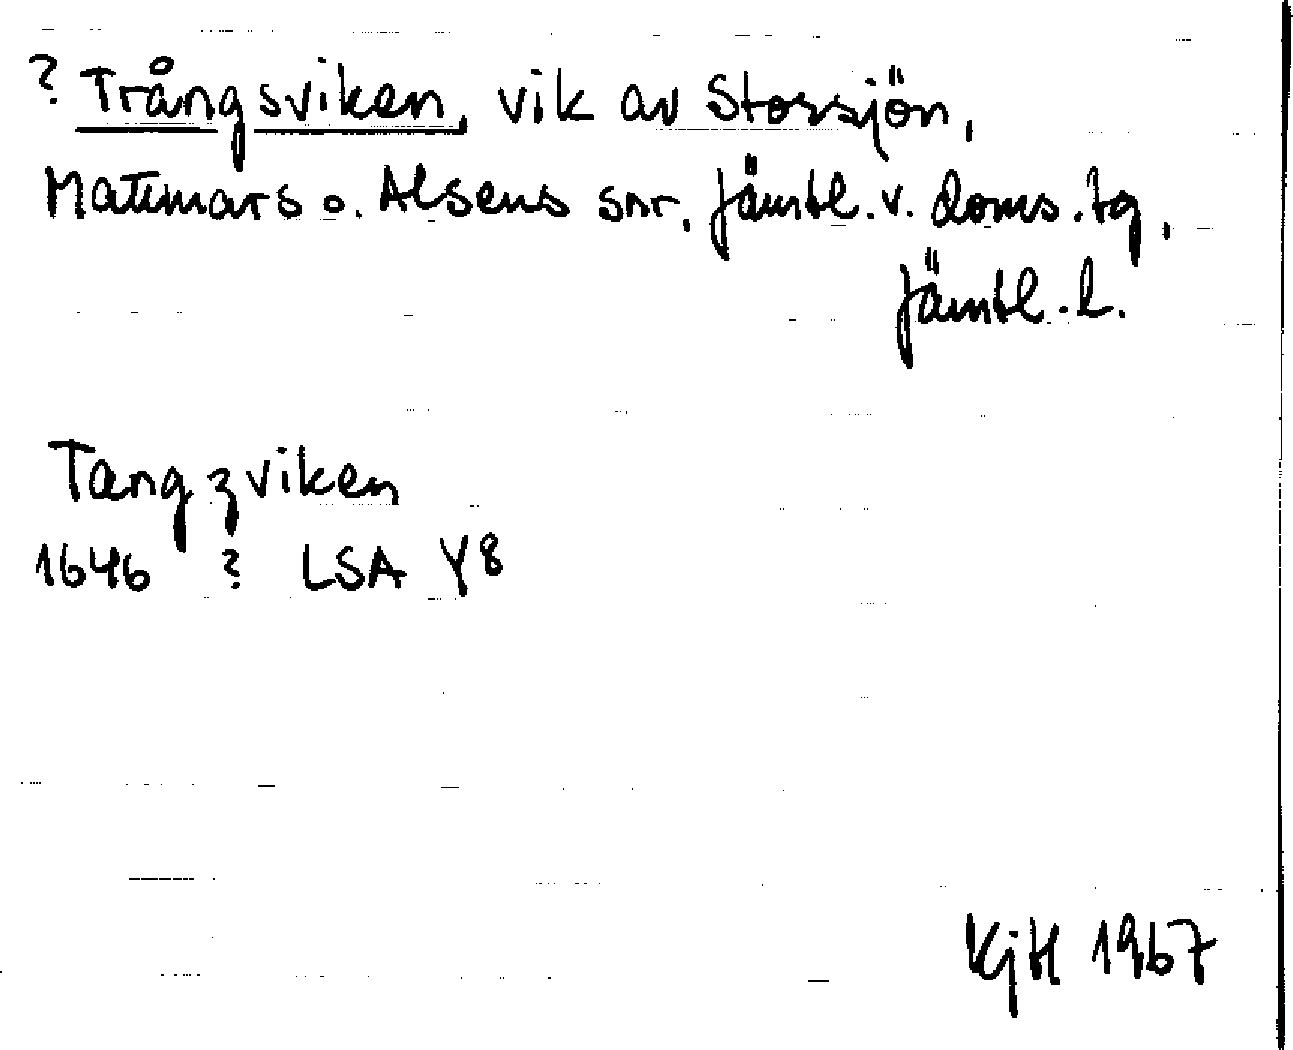 ? Trångsviken, vik av Storsjön,
Mattmars o. Alsens snr. Jämtl. v. doms. tg,
Jämtl. l.
Tangzviken
1646 ? LSA Y8
KjH 1967